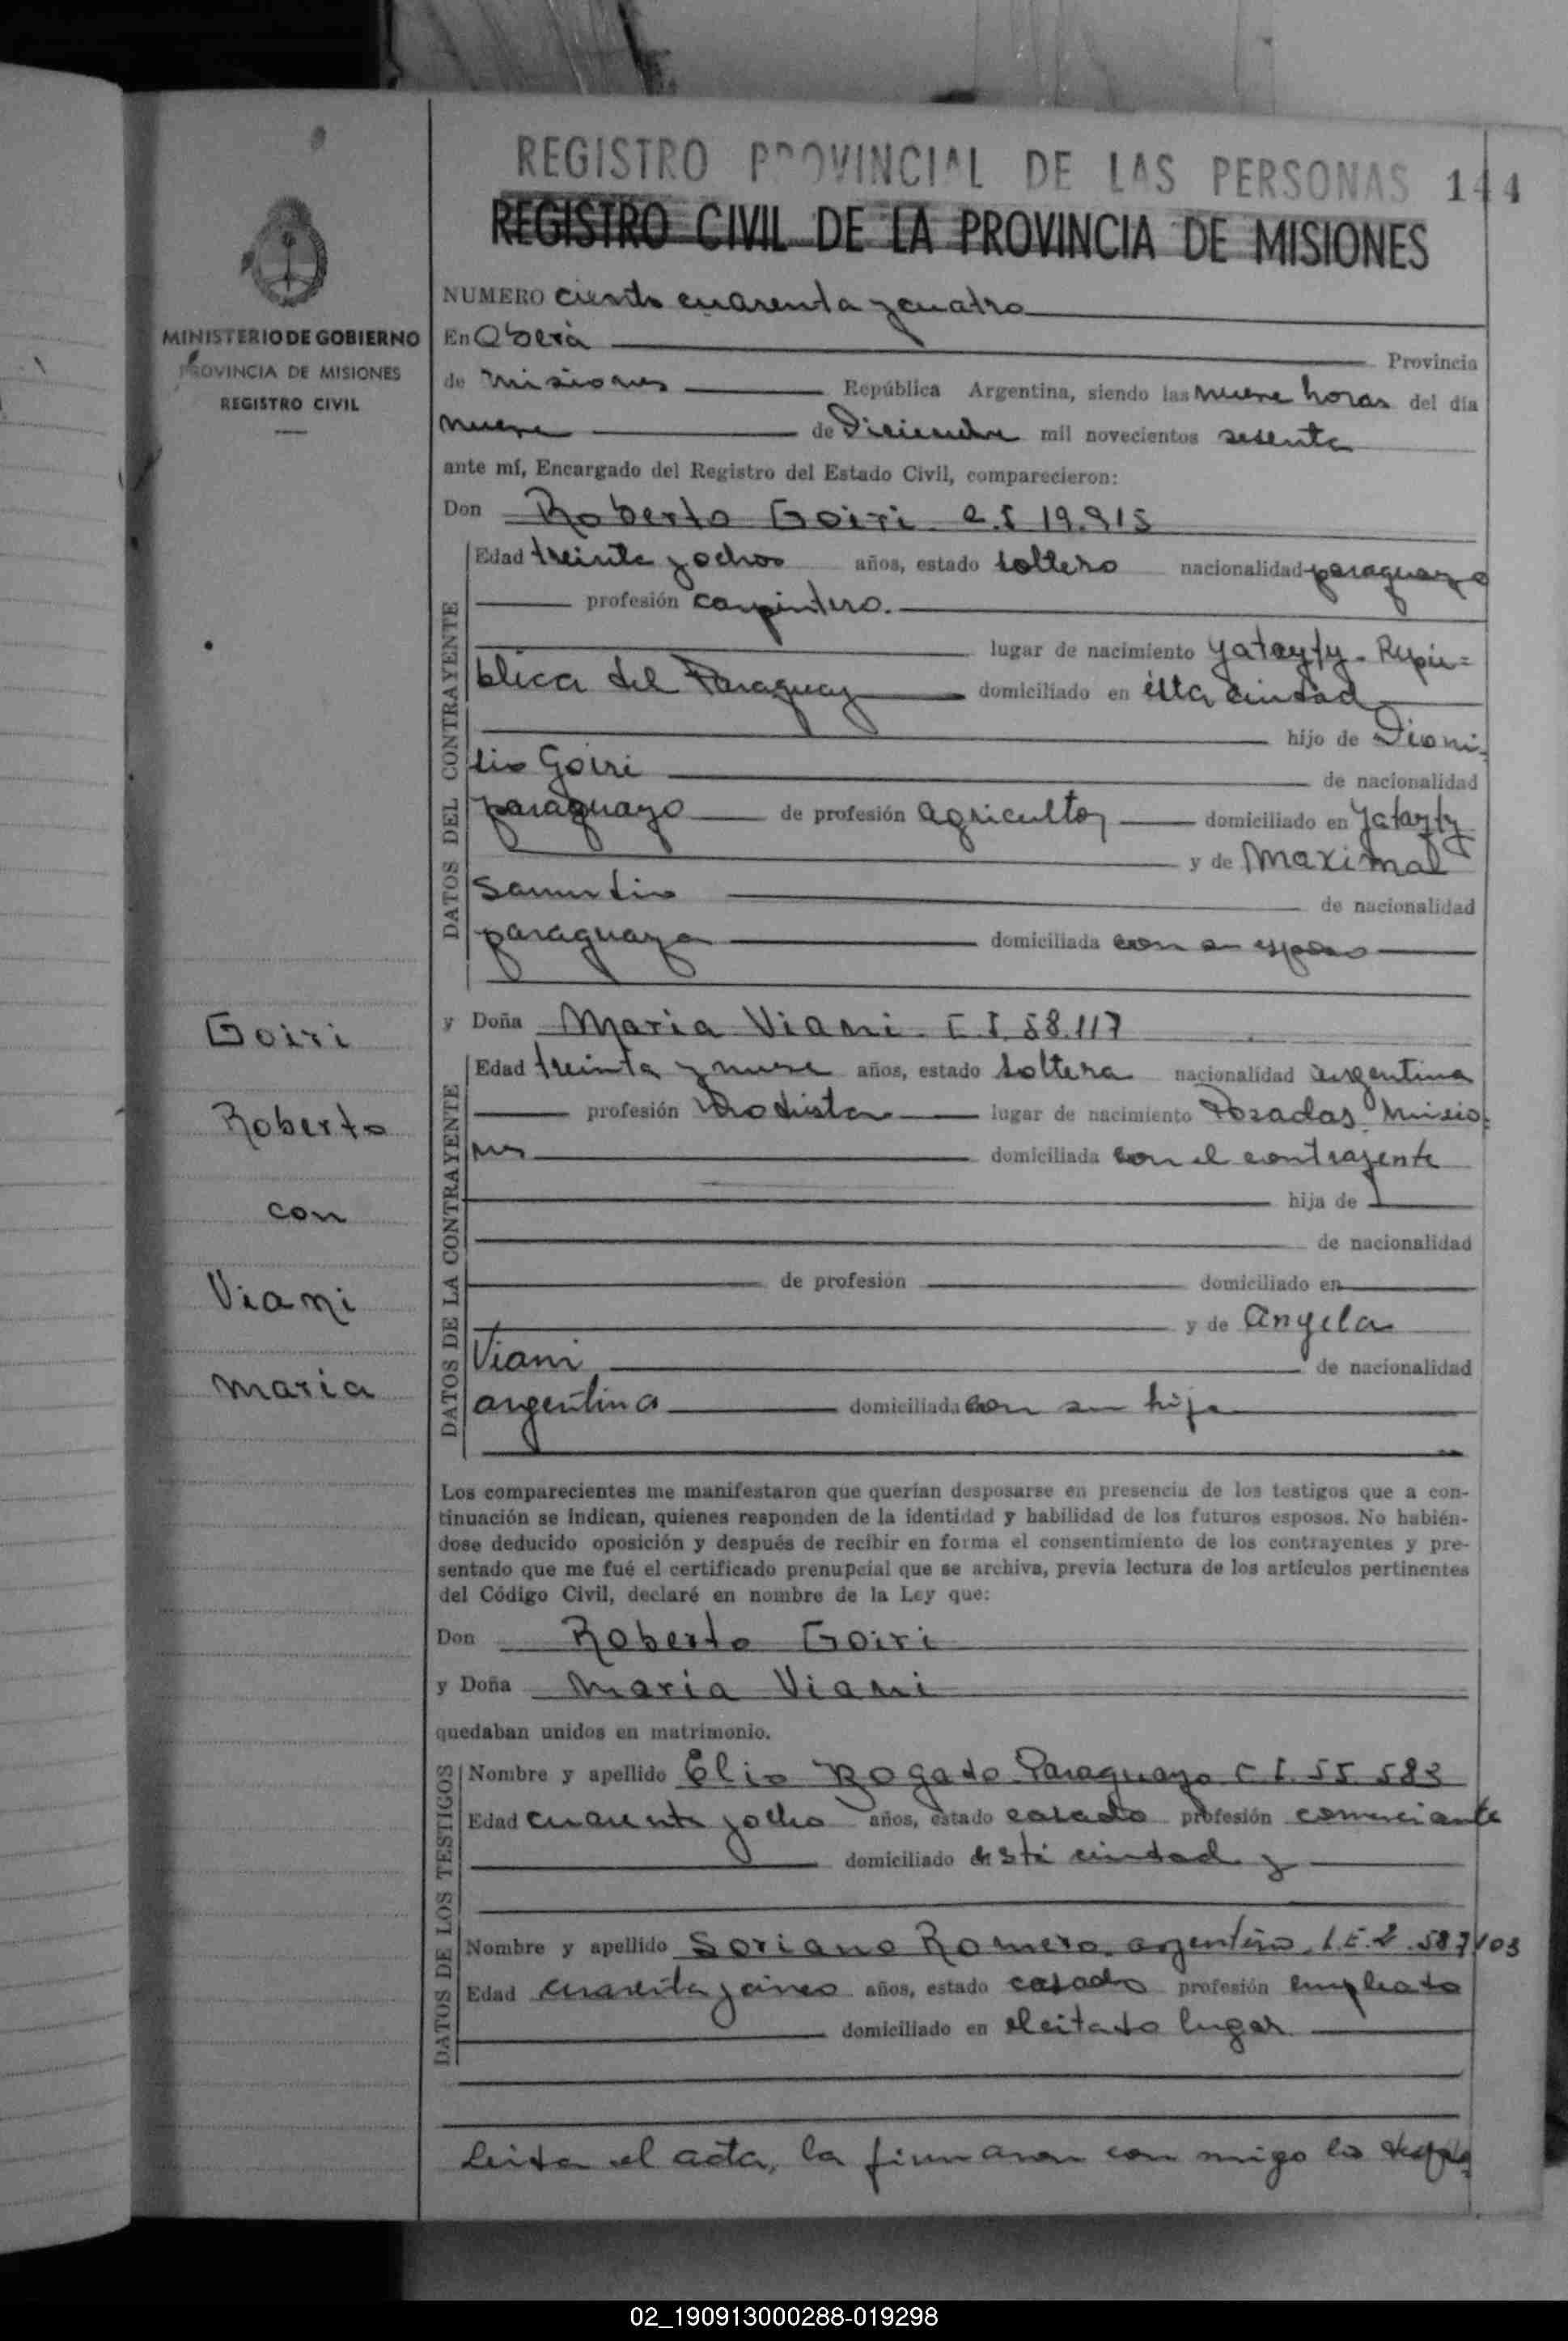 REGISTRO PROVINCIAL DE LAS PERSONAS 144
REGISTRO CIVIL DE LA PROVINCIA DE MISIONES
MINISTERIO DE GOBIERNO
PROVINCIA DE MISIONES
REGISTRO CIVIL
NUMERO ciento cuarenta y cuatro
En Oberá Provincia
de Misiones República Argentina, siendo las nueve horas del día
nueve de Diciembre mil novecientos sesenta
ante mí, Encargado del Registro del Estado Civil, comparecieron:
Don Roberto Goiri C.I 19.915
DATOS DEL CONTRAYENTE
Edad treinta y ochos años, estado soltero nacionalidad paraguayo
profesión carpintero.
lugar de nacimiento Yatayty. Repú=
blica del Paraguay domiciliado en ésta ciudad
hijo de Dioni=
sio Goiri de nacionalidad
paraguayo de profesión agricultor domiciliado en Yatayty
y de Maximal
de nacionalidad
paraguaya domiciliada con su esposo
Goiri
Roberto
con
Viani
Maria
y Doña Maria Viani C.I. 58.117
DATOS DE LA CONTRAYENTE
Edad treinta y nueve años, estado soltera nacionalidad argentina
profesión Modista lugar de nacimiento Posadas, Misio=
nes domiciliada con el contrayente
hija de
de nacionalidad
de profesión domiciliado en
y de Angela
Viani de nacionalidad
argentina domiciliada con su hija
Los comparecientes me manifestaron que querían desposarse en presencia de los testigos que a con-
tinuación se indican, quienes responden de la identidad y habilidad de los futuros esposos. No habién-
dose deducido oposición y después de recibir en forma el consentimiento de los contrayentes y pre-
sentado que me fué el certificado prenupcial que se archiva, previa lectura de los artículos pertinentes
del Código Civil, declaré en nombre de la Ley que:
Don Roberto Goiri
y Doña Maria Viani
quedaban unidos en matrimonio.
DATOS DE LOS TESTIGOS
Nombre y apellido Elio Rogado Paraguayo C.I. 55 583
Edad cuarenta y ocho años, estado casado profesión comerciante
domiciliado en ésta ciudad y
Nombre y apellido Soriano Romero. argentino, L.E. 2.587103
Edad cuarenta y cinco años, estado casado profesión empleado
domiciliado en el citado lugar
Leida el acta, la firmaron con migo los
02_190913000288-019298